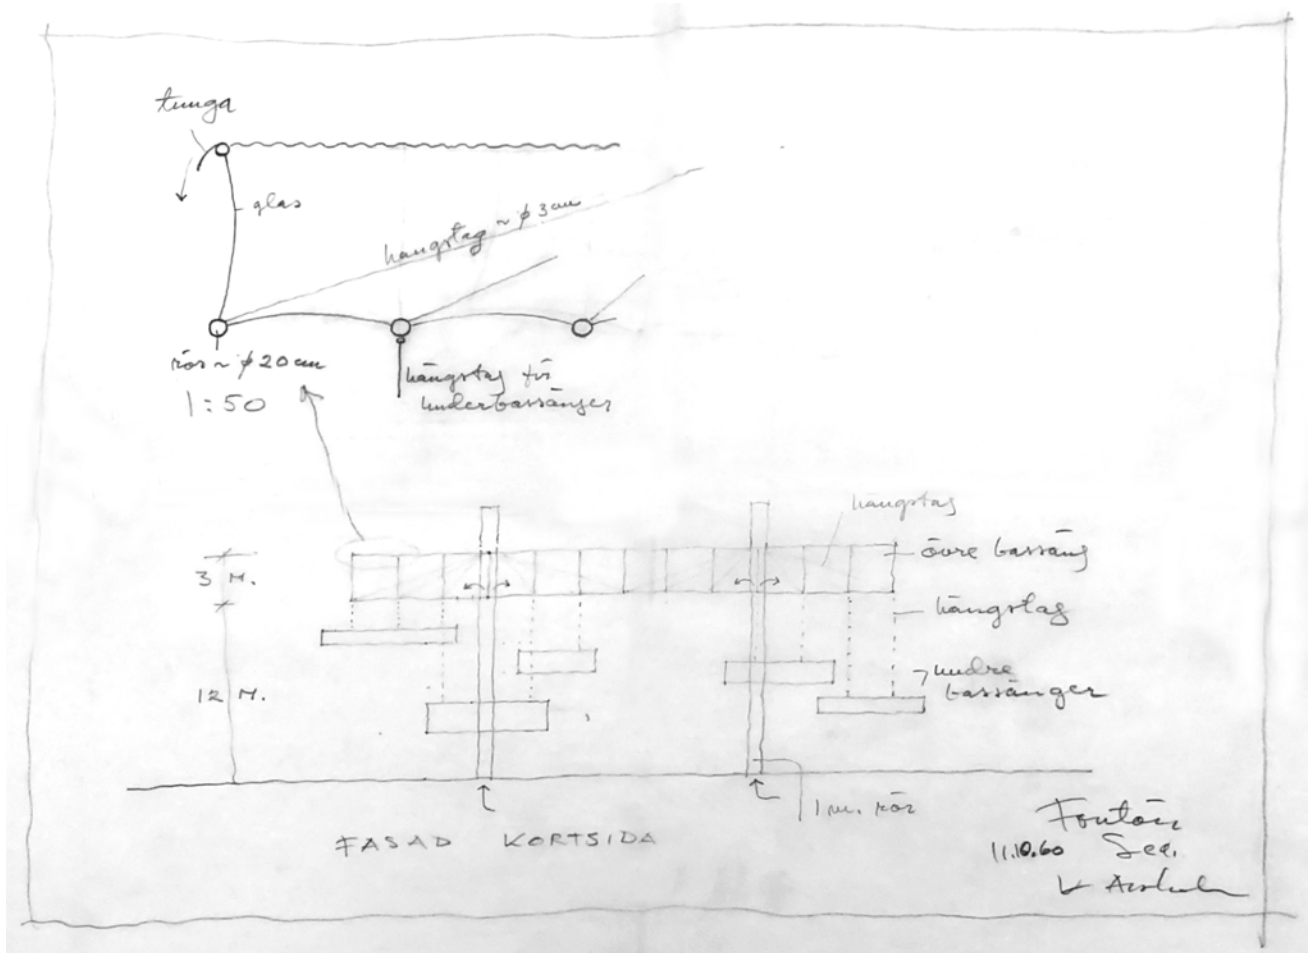 tunga
glas
hängstag ~ ϕ 3 cm
rör ~ ϕ 20 cm
1:50
hängstag för
underbassänger
hängstag
övre bassäng
3 M.
hängstag
12 M.
undre
bassänger
1 m. rör
FASAD KORTSIDA
Fontän
11.10.60